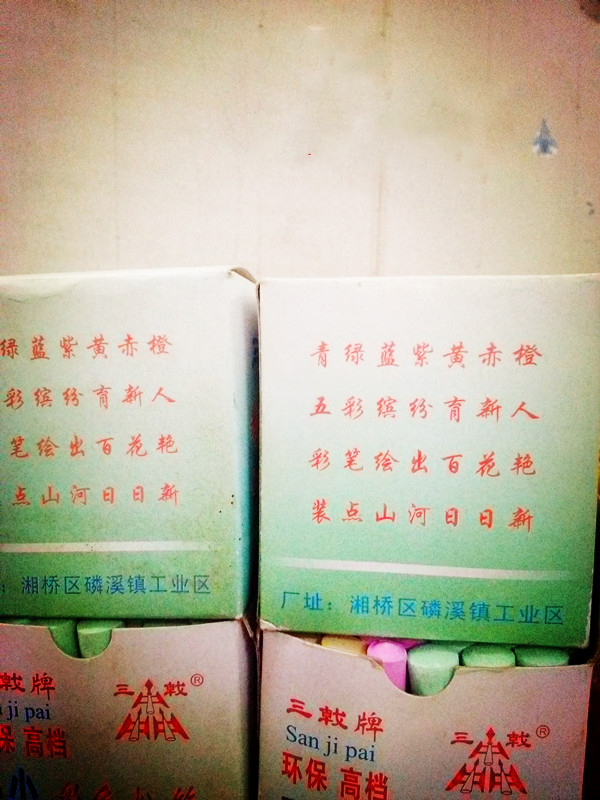 绿蓝紫黄赤橙
彩缤纷育新人
笔绘出百花艳
点山河日日新
：湘桥区磷溪镇工业区
戟牌
ji pai
保 高档
三戟®
小
青绿蓝紫黄赤橙
五彩缤纷育新人
彩笔绘出百花艳
装点山河日日新
厂址：湘桥区磷溪镇工业区
三戟牌
San ji pai
环保 高档
三戟®